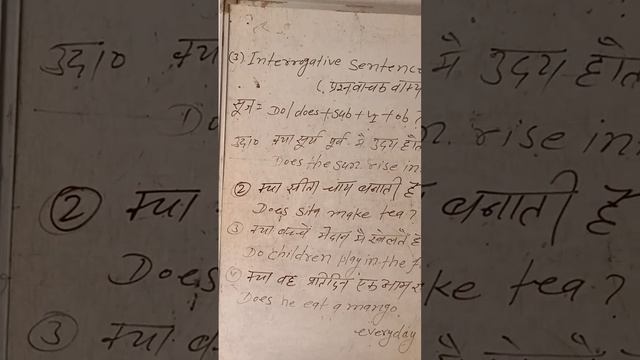 (3) Interrogative Sentenc
(प्रश्नवाचक वाक्य
सूत्र = Do/does+sub+V1+ob
उदा० क्या सूर्य पूर्व मे उदय होत
Does the sun rise in
② क्या सीता चाय बनाती है
Does sita make tea?
③ क्या बच्चे मैदान मे खेलते है
Do children play in the f
④ क्या वह प्रतिदिन एक आम
Does he eat a mango
everyday